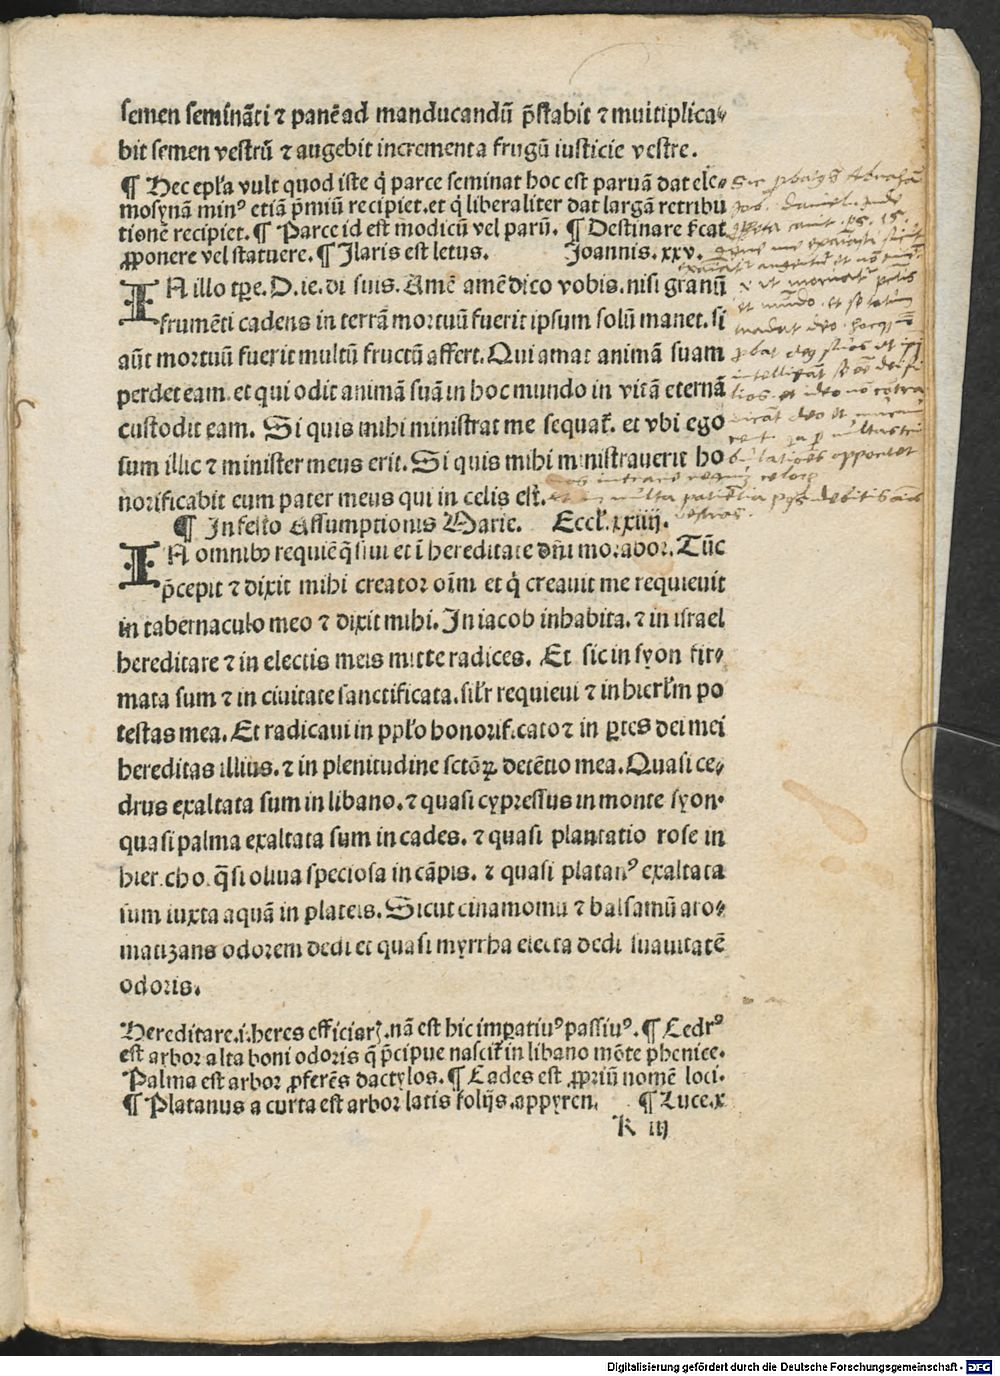 semen semināti ⁊ panē ad manducandū p̄stabit ⁊ multiplica⸗
bit semen vestrū ⁊ augebit incrementa frugū iusticie vestre.
¶ Hec epl'a vult quod iste q̇ parce seminat hoc est paruā dat ele⸗
mosynā minꝰ etiā p̄miū recipiet. et q̇ liberaliter dat largā retribu
tionē recipiet. ¶ Parce id est modicū vel parū. ¶ Destinare s̄cat
ꝓponere vel statuere. ¶ Ilaris est letus. Joannis. xxv.
IN illo tꝑe. D. ie. di suis. Amē amē dico vobis. nisi granū
frumēti cadens in terrā mortuū fuerit ipsum solū manet. si
aūt mortuū fuerit multū fructū affert. Qui amat animā suam
perdet eam. et qui odit animā suā in hoc mundo in vitā eternā
custodit eam. Si quis mihi ministrat me sequat᷑. et vbi ego
sum illic ⁊ minister meus erit. Si quis mihi ministraverit ho
norificabit eum pater meus qui in celis est.
¶ In festo Assumptionis Marie. Eccl'. xxiiij.
IN omnibꝫ requiē q̄siui et ī hereditate dn̄i morabor. Tūc
p̄cepit ⁊ dixit mihi creator oīm et q̇ creauit me requieuit
in tabernaculo meo ⁊ dixit mihi. In iacob inhabita. ⁊ in israel
hereditare ⁊ in electis meis mitte radices. Et sic in syon fir⸗
mata sum ⁊ in ciuitate sanctificata. sil'r requieui ⁊ in hierl'm po
testas mea. Et radicaui in ppl'o honorificato ⁊ in ꝑtes dei mei
hereditas illius. ⁊ in plenitudine sctōꝝ detētio mea. Quasi ce⸗
drus exaltata sum in libano. ⁊ quasi cypressus in monte syon.
quasi palma exaltata sum in cades. ⁊ quasi plantatio rose in
hiericho. q̄si oliua speciosa in cāpis. ⁊ quasi platanꝰ exaltata
sum iuxta aquā in plateis. Sicut cinamomū ⁊ balsamū aro⸗
matizans odorem dedi et quasi myrrha electa dedi suauitatē
odoris.
Hereditare. i. heres efficiar. nā est hic imꝑatiuꝰ passiuꝰ. ¶ Cedrꝰ
est arbor alta boni odoris q̄ p̄cipue nascit᷑ in libano mōte phenice.
Palma est arbor ꝓferēs dactylos. ¶ Cades est ꝓpriū nomē loci.
¶ Platanus a curta est arbor latis folijs. appyren. ¶ Luce. x
K iij
Digitalisierung gefördert durch die Deutsche Forschungsgemeinschaft - DFG